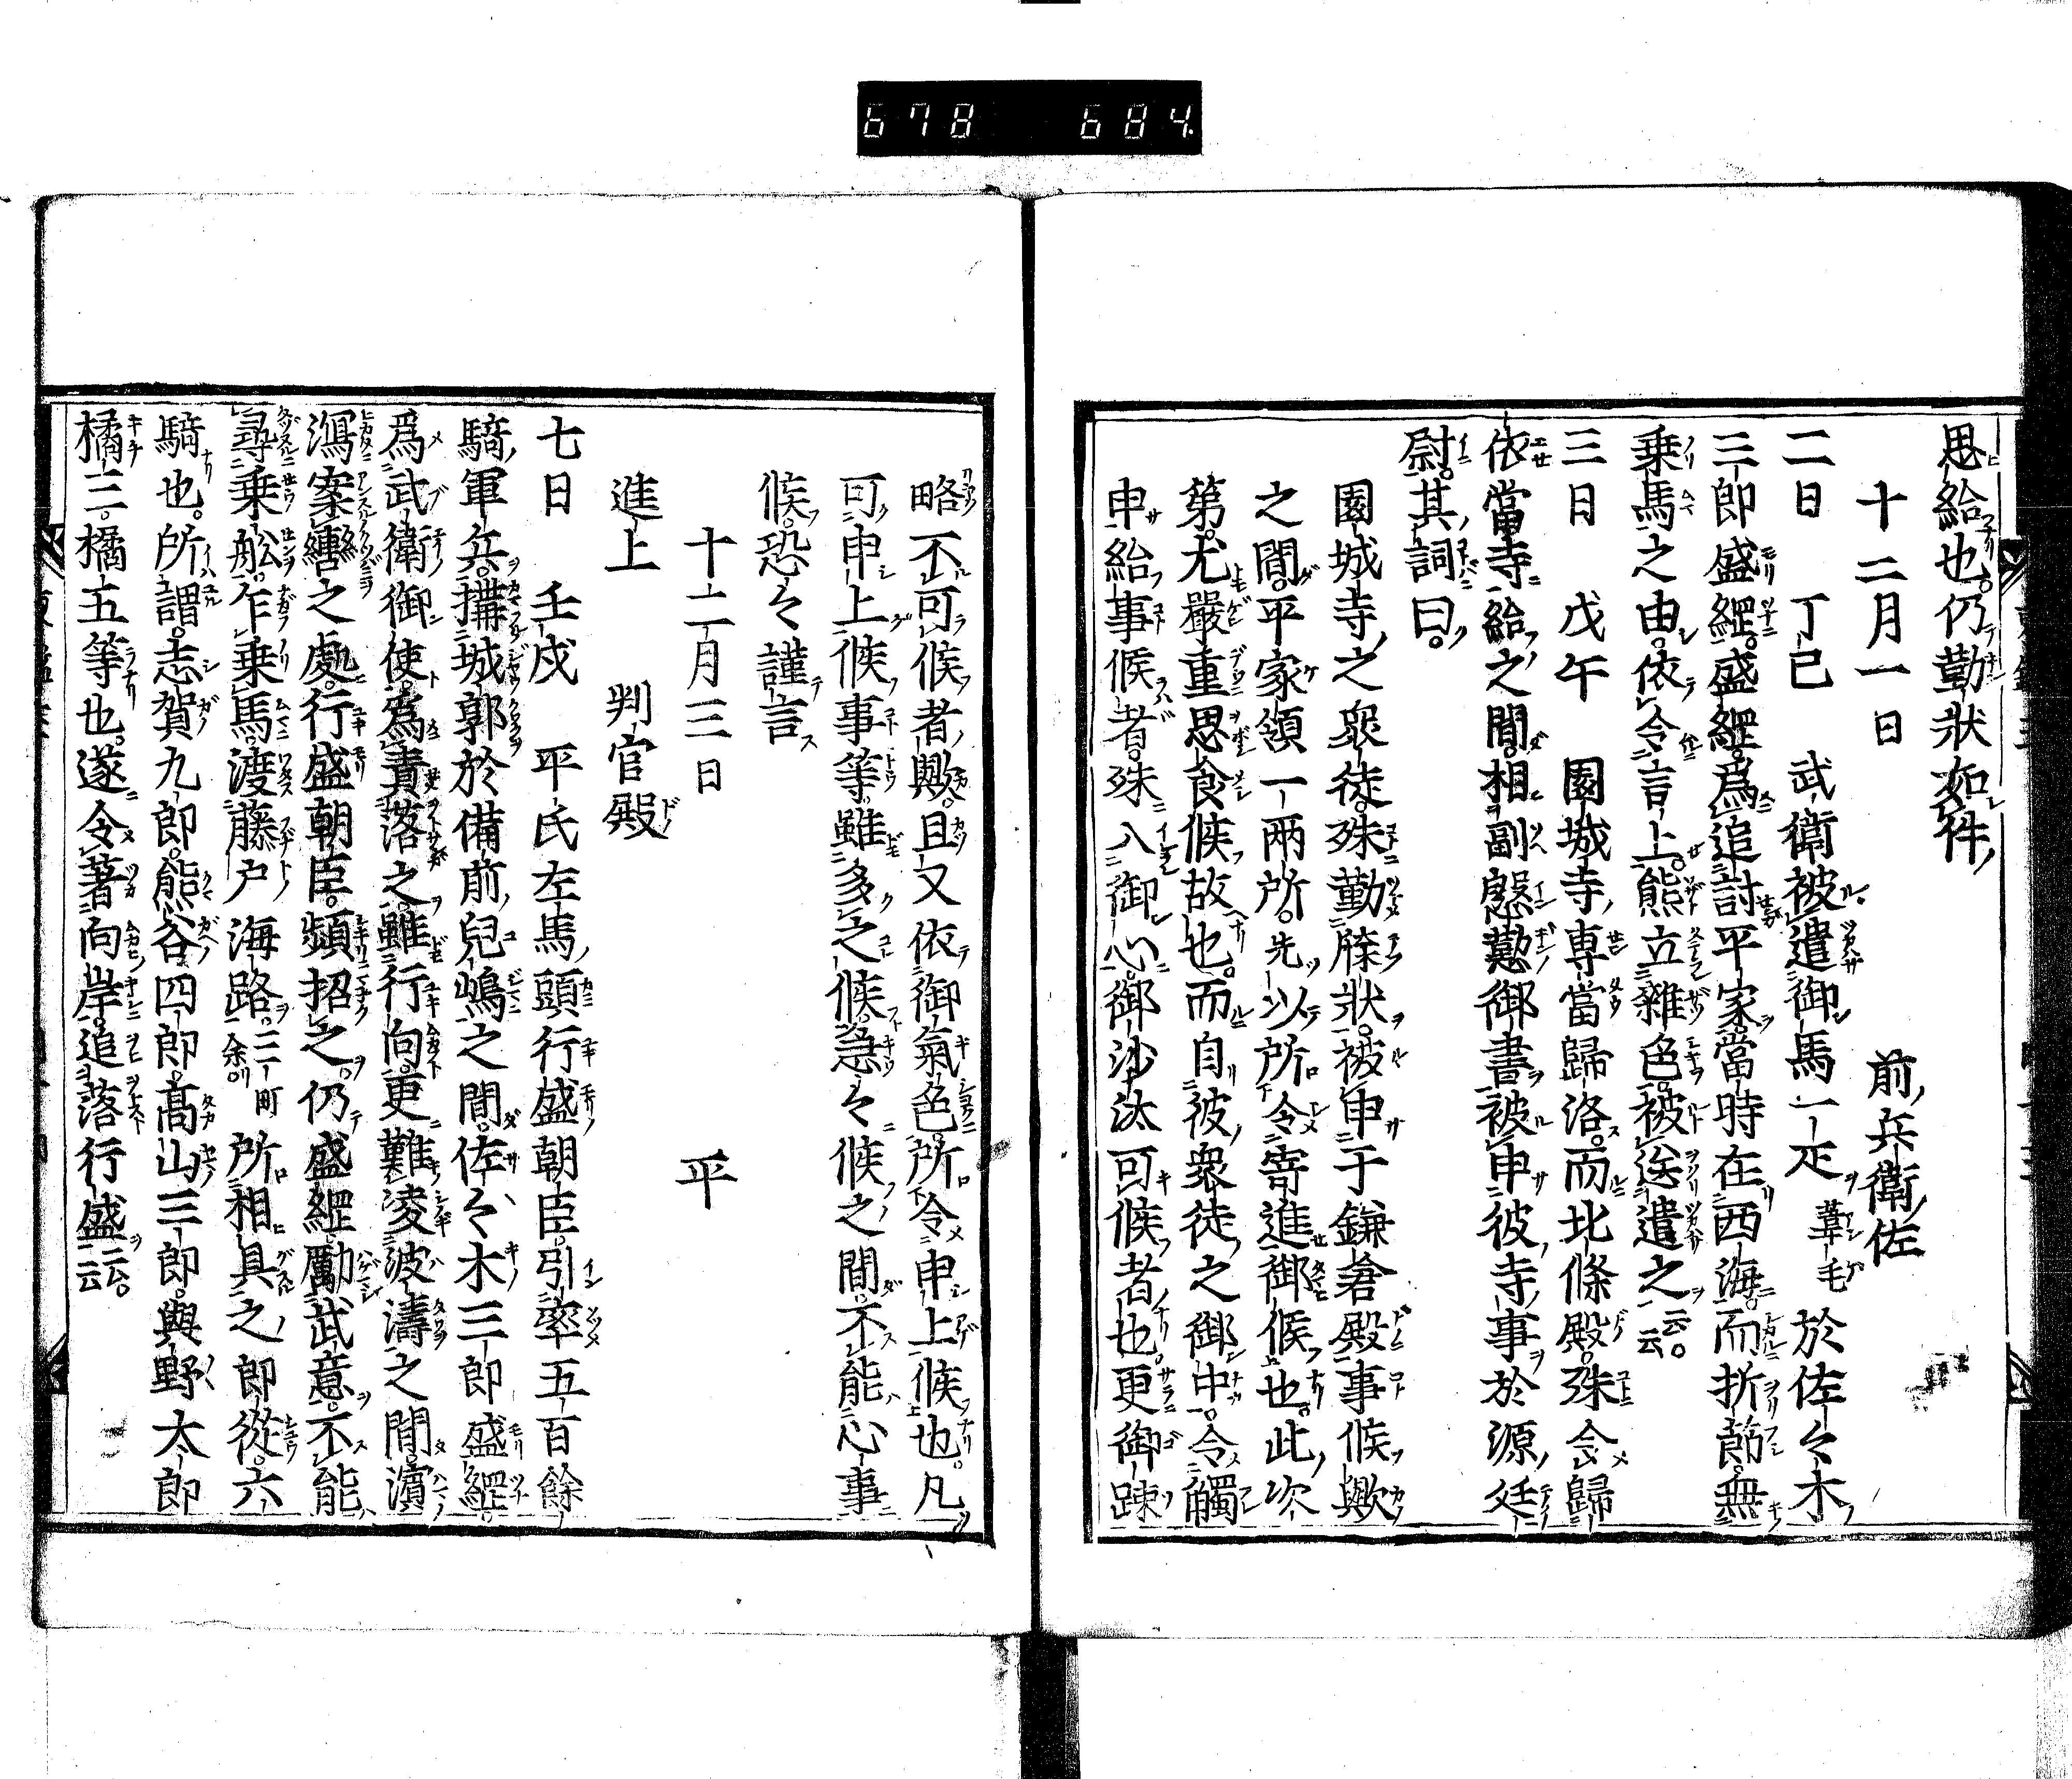 678 684
思給也。仍勒狀如件
十二月一日 前兵衛佐
二日 丁巳 武衛被遣御馬一疋葦毛於佐々木
三郎盛綱。盛綱爲追討平家。當時在西海。而折節無
乗馬之由。依令言上。熊立雜色。被送遣之云云。
三日 戊午 園城寺専當歸洛。而北條殿。殊令歸
依當寺給之間。相副慇懃御書被申彼寺事於源廷
尉。其詞曰。
園城寺之衆徒。殊勤牒狀。被申于鎌倉殿事候歟
之間。平家領一兩所。先以所令寄進御候也。此次
第。尤嚴重思食候故也。而自彼衆徒之御中。令觸
申給事候者。殊入御心。御沙汰可候者也。更御踈
略不可候者歟。且又依御氣色。所令申上候也。凡
可申上候事等。雖多之候。急々候之間。不能心事
候。恐々謹言
十二月三日 平
進上 判官殿
七日 壬戌 平氏左馬頭行盛朝臣。引率五百餘
騎軍兵。搆城郭於備前兒嶋之間。佐々木三郎盛綱。
爲武衛御使。爲責落之。雖行向。更難凌波濤之間。濱
瀉案轡之處。行盛朝臣。頻招之。仍盛綱勵武意。不能
尋乗舩。乍乗馬。渡藤戸海路。三町余所相具之郎從六
騎也。所謂。志賀九郎。熊谷四郎。高山三郎。與野太郎
橘三。橘五等也。遂令著向岸。追落行盛云云。